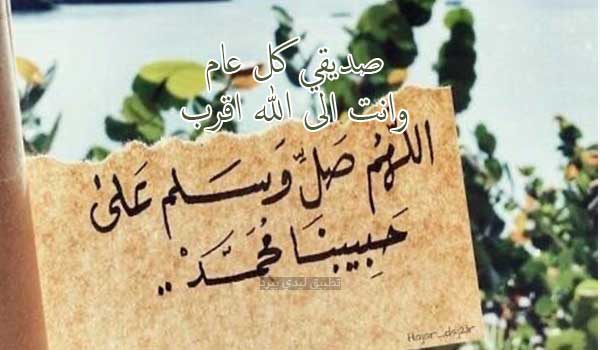 صديقي كل عام
وانت الى الله اقرب
اللهم صل وسلم على
حبيبنا محمد ..
تطبيق ليدي بيرد